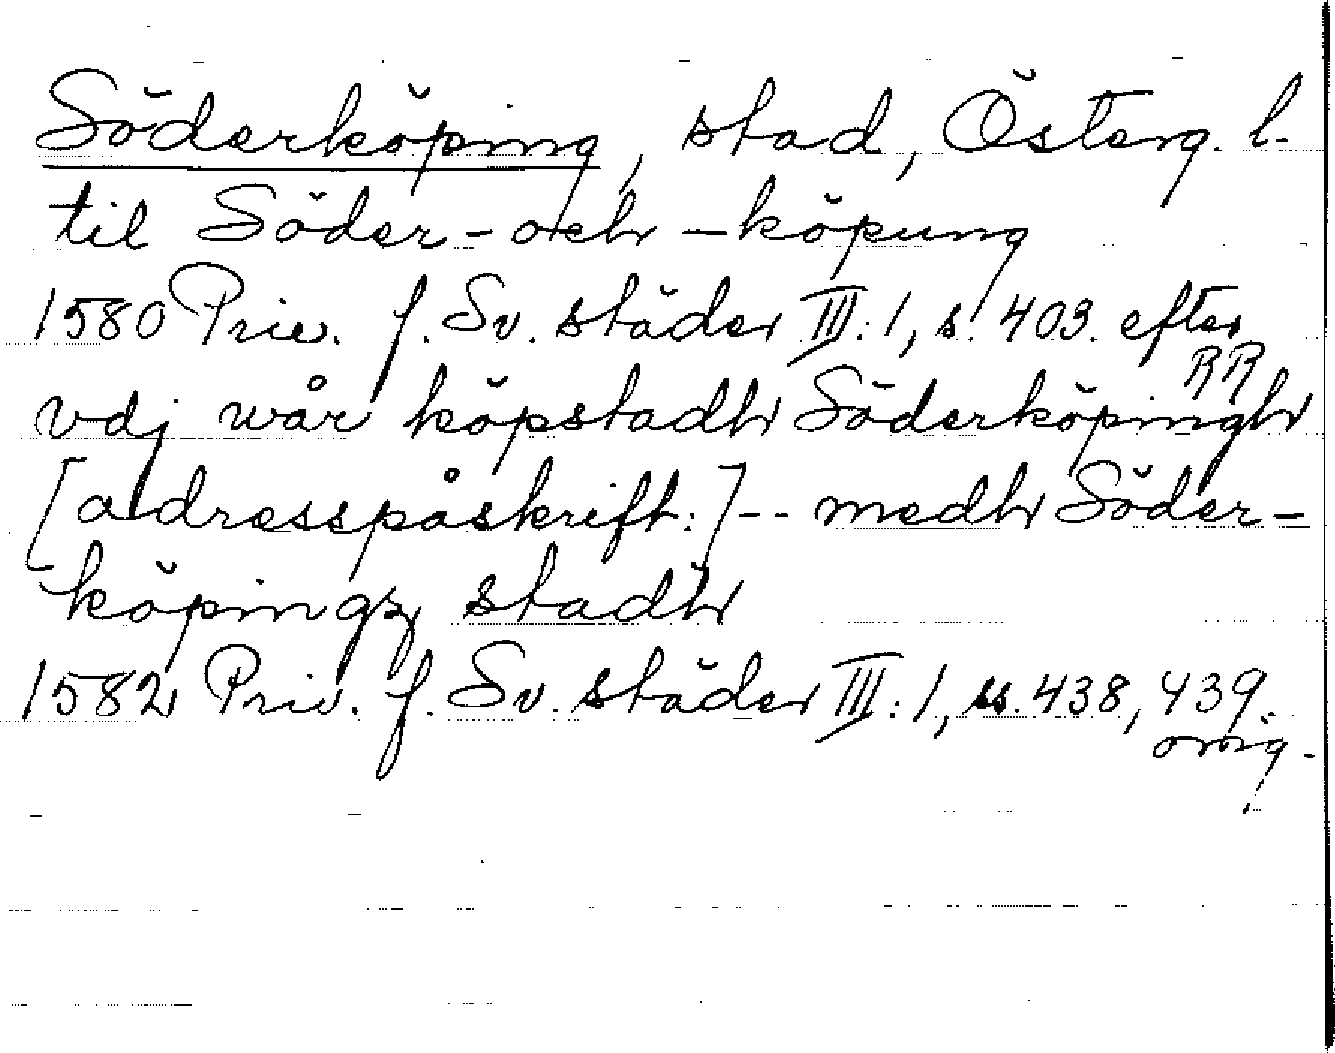 Söderköping, stad, Österg. l.
til Söder- och -köpung
1580 Priv. f. Sv. städer III:1, s. 403. efter
RR
vdj wår köpstadh Söderköpingh
[adresspåskrift:] -- medh Söder-
köpingz stadh
1582 Priv. f. Sv. städer III:1, ss. 438, 439.
orig.